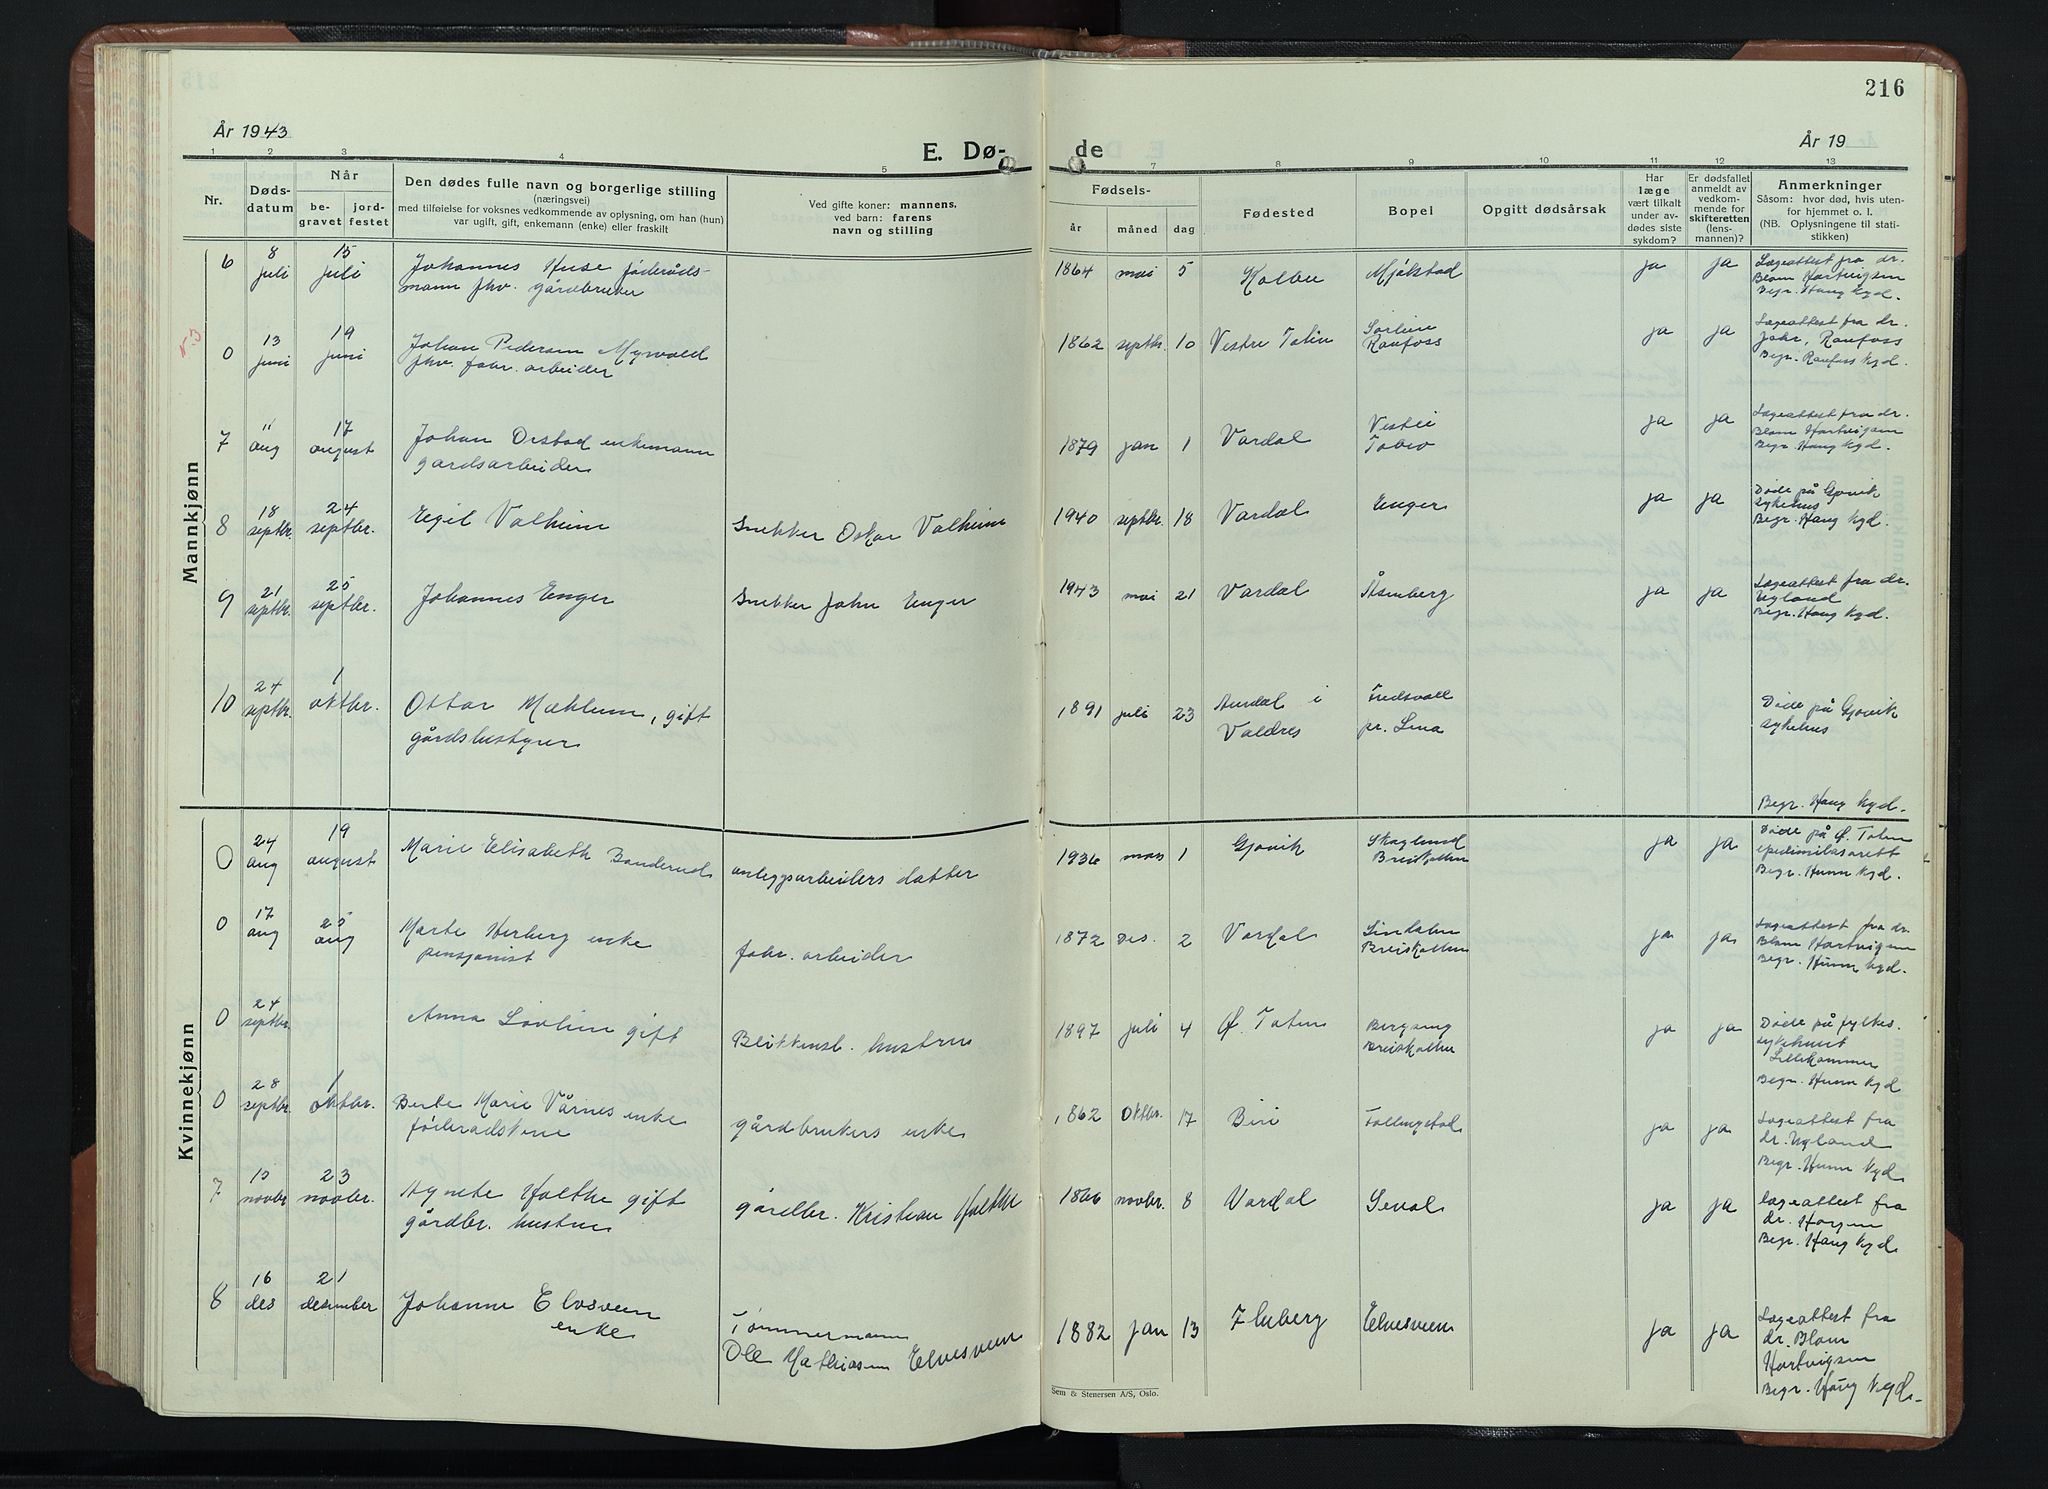 216
År 1943
E. Dø-
de
År 19
1 2 3 4 5 7 8 9 10 11 12 13
Nr.
Døds-
datum
Når
be-
gravet
jord-
festet
Den dødes fulle navn og borgerlige stilling
(næringsvei)
med tilføielse for voksnes vedkommende av oplysning, om han (hun)
var ugift, gift, enkemann (enke) eller fraskilt
Ved gifte koner: mannens,
ved barn: farens
navn og stilling
Fødsels-
år måned dag
Fødested
Bopel
Opgitt dødsårsak
Har
læge
vært tilkalt
under av-
dødes siste
sykdom?
Er dødsfallet
anmeldt av
vedkom-
mende for
skifteretten
(lens-
mannen)?
Anmerkninger
Såsom: hvor død, hvis uten-
for hjemmet o. l.
(NB. Oplysningene til stati-
stikken)
Mannkjønn
6 8 juli 15 juli Johannes Huse føderåds-
mann fhv. gårdbruker
1864 mai 5 Kolbu Mjølstad ja ja Lægeattest fra dr.
Blom Hartvigsen
Begr. Haug kgd.
0 13 juni 19 juni Johan Pedersen Myrvold
fhv. fabr. arbeider
1862 septbr. 10 Vestre Toten Sørlien
Raufoss ja ja Lægeattest fra dr.
Jahr, Raufoss
Begr. Raufoss kgd.
7 11 aug 17 august Johan Orstad enkemann
gardsarbeider
1879 jan 1 Vardal ja ja Lægeattest fra dr.
Blom Hartvigsen
Begr. Haug kgd.
8 18 septbr. 24 septbr. Egil Valheim Snekker Oskar Valheim
1940 septbr. 18 Vardal Enger ja ja Døde på Gjøvik
sykehus
Begr. Haug kgd.
9 21 septbr. 25 septbr. Johannes Enger Snekker John Enger
1943 mai 21 Vardal Åsenberg ja ja Lægeattest fra dr.
Uglund
Begr. Haug kgd.
10 24 septbr. 1 oktbr. Ottar Mæhlum, gift
gårdsbestyrer
1891 juli 23 Aurdal i
Valdres Fredsvoll
pr. Lena Døde på Gjøvik
sykehus
Begr. Haug kgd.
Kvinnekjønn
0 24 aug 19 august Marie Elisabeth Bonderud anleggsarbeiders datter
1936 mars 1 Gjøvik Skoglund
Breiskallen ja ja Døde på Ø. Toten
epidemilasarett
Begr. Hunn kgd.
0 17 aug 25 aug Marte Herberg enke
pensjonist fabr. arbeider
1872 des. 2 Vardal Lindalen
Breiskallen ja ja Lægeattest fra dr.
Blom Hartvigsen
Begr. Hunn kgd.
0 24 septbr. Anna Lövlien gift Blikkensl. hustru
1897 juli 4 Ø. Toten Bergseng
Breiskallen ja ja Døde på fylkes.
sykehuset
Lillehammer
Begr. Hunn kgd
0 28 septbr. 1 oktbr. Berte Marie Vårnes enke
föderådskone gårdbrukers enke
1862 oktbr. 17 Biri ja ja Lægeattest fra
dr. Uglund
Begr. Hunn kgd
7 15 novbr 23 novbr. Agnete Holthe gift
gårdbr. hustru gårdbr. Kristian Holthe
1866 novbr. 8 Vardal Seval ja ja Lægeattest fra
dr. Horgen
Begr. Haug kgd.
8 16 des 21 desember Johanne Elvsveen
enke Tömmermann
Ole Mathiasen Elvesveen
1882 jan 13 Fluberg Elvesveen ja ja Lægeattest fra
dr. Blom
Hartvigsen
Begr. Haug kgd.
Sem & Stenersen A/S, Oslo.